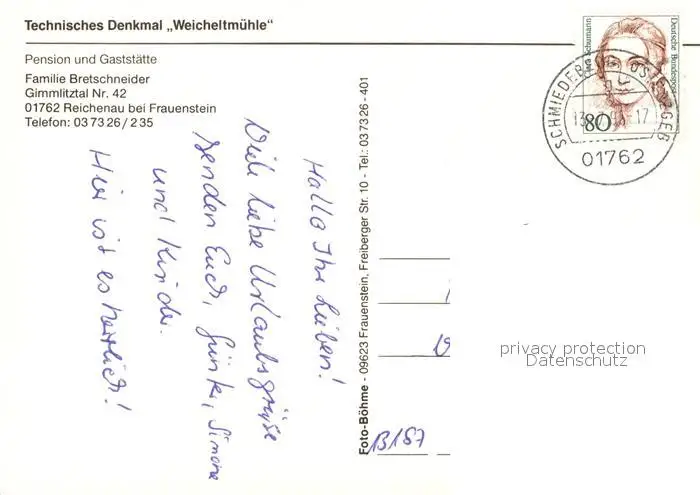 Technisches Denkmal „Weicheltmühle"
Pension und Gaststätte
Familie Bretschneider
Gimmlitztal Nr. 42
01762 Reichenau bei Frauenstein
Telefon: 03 73 26 / 2 35
Hallo Ihr Lieben!
Viele liebe Urlaubsgrüße
senden Euch, Günter, Simone
und Kinder.
Hier ist es herrlich!
Foto-Böhme - 09623 Frauenstein, Freiberger Str. 10 - Tel.: 03 73 26 - 401
Clara Schumann
Deutsche Bundespost
80
SCHMIEDEBERG OSTERZGEB
01762
B187
privacy protection
Datenschutz